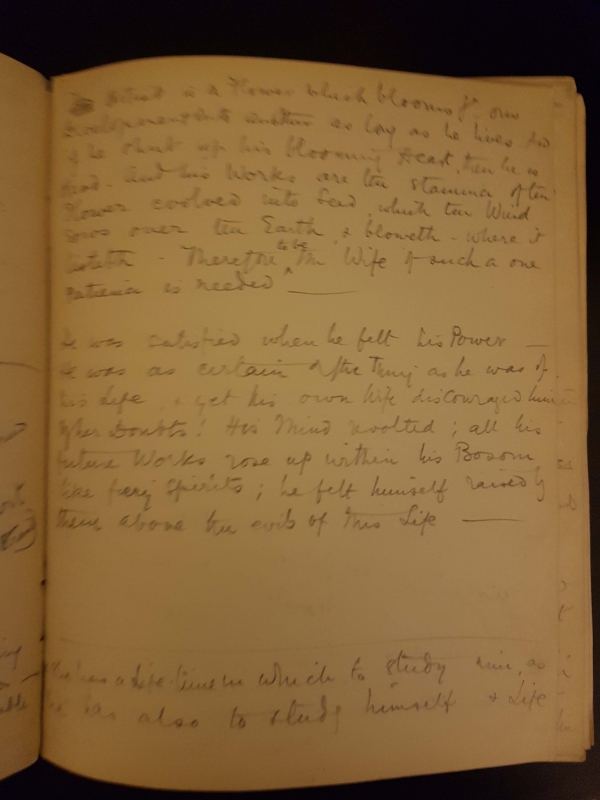 Artist is a Flower which blooms fr. one
Development into another as long as he lives. And
if he shut up his blooming Heart, then he is
dead. And his Works are the stamina of the
Flower evolved into Seed, which the Wind
sows over the Earth, & bloweth - where it
listeth - Therefore to be the Wife of such a one
Patience is needed —
He was satisfied when he felt his Power —
He was as certain of the Thing as he was of
his Life, & yet his own wife discouraged him
by her Doubts! His Mind revolted; all his
future Works rose up within his Bosom
like fiery Spirits; he felt himself raised by
them above the evils of this Life —
She has a Life-time in which to study him, as
he has also to study himself & Life